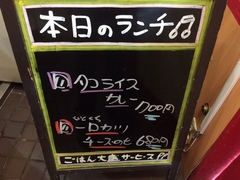 本日のランチ♫
A タコライス
カレー
700円
ひとくち
B 一口カツ
チーズのせ 680円
ごはん大盛サービス!!